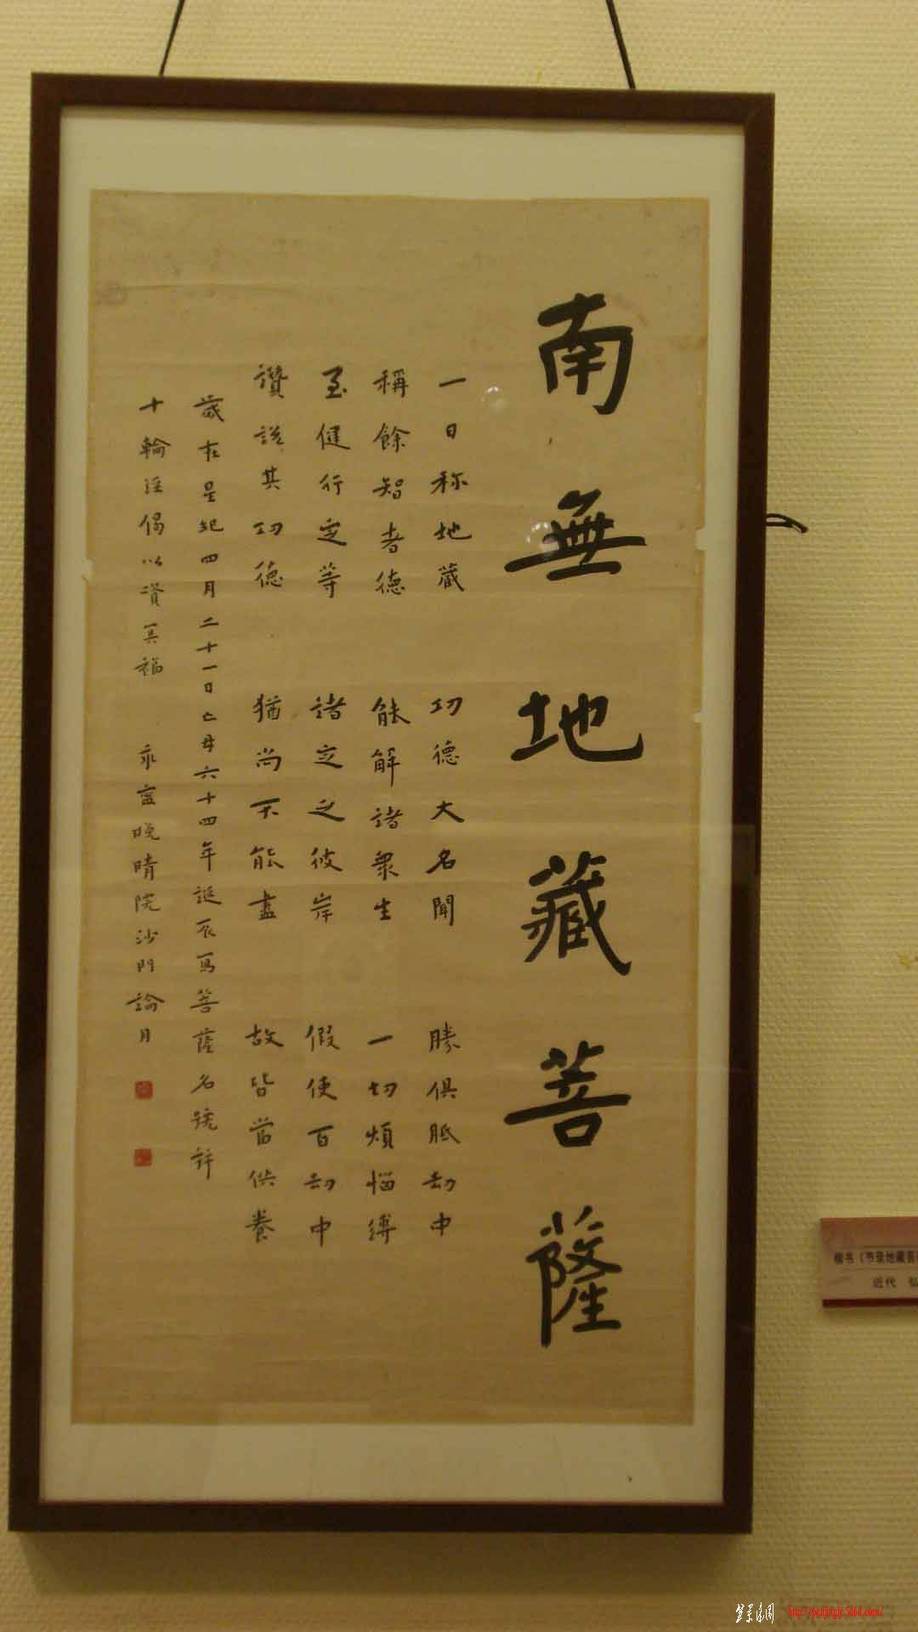 南無地藏菩薩
一日称地藏 功德大名聞 勝俱胝劫中
稱餘智者德 能解諸眾生 一切煩惱縛
至健行定等 諸定之彼岸 假使百劫中
讚說其功德 猶尚不能盡 故皆當供養
歲在星紀四月二十一日亡母六十四年誕辰写菩薩名號并
十輪經偈以資冥福 永寧晚晴院沙門論月
楷书
近代
http://